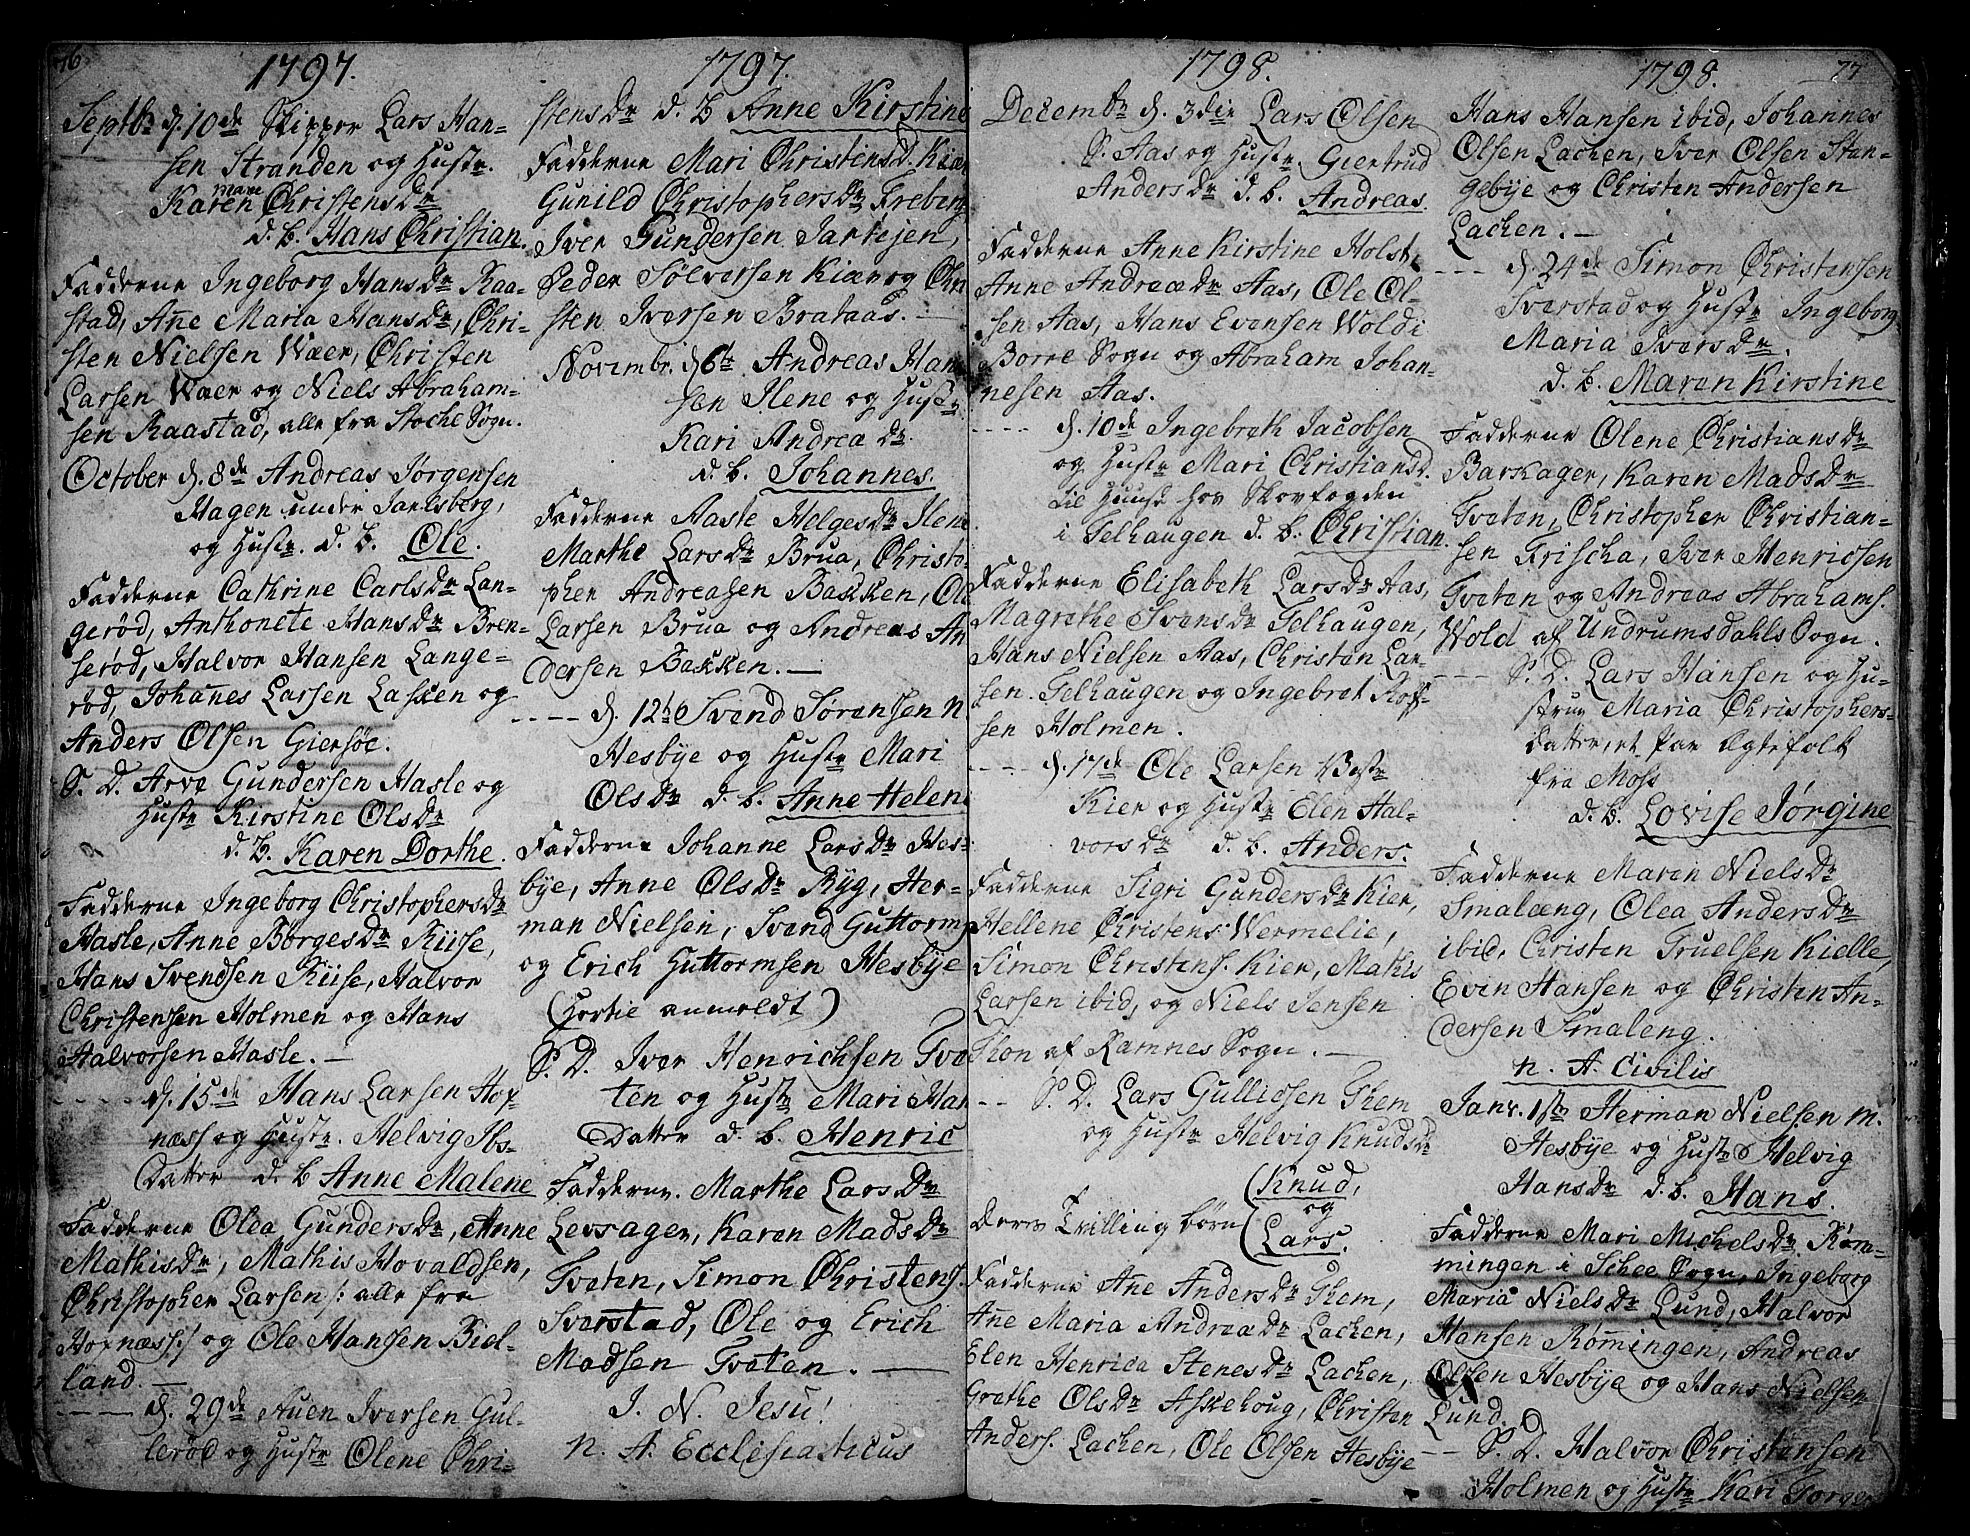 76
1797.
Septbr d. 10de Skipper Lars Han-
sen Stranden og Hustr.
Karen Marie Christensdr
d. b. Hans Christian.
Fadderne Ingeborg Hansdr Raa-
stad, Anne Maria Hansdr, Chri-
sten Nielsen Waer, Christen
Larsen Waer og Niels Abraham-
sen Raastad, alle fra Stoche Sogn.
October d. 8de Andreas Jørgensen
Hagen under Jarlsberg,
og Hustr. d. b. Ole.
Fadderne Cathrine Carlsdr Lan-
gerød, Anthonete Hansdr Bren-
serød, Halvor Hansen Lange-
rød, Johannes Larsen Lasken og
Anders Olsen Giersøe.
S. D. Arve Gundersen Hasle og
Hustr Kirstine Olsdr
d. b. Karen Dorthe.
Fadderne Ingeborg Christophersdr
Hasle, Anne Børgesdr Kiise,
Hans Svendsen Kiise, Halvor
Christensen Holmen og Hans
Halvorsen Hasle. —
d. 15de Hans Larsen Hof-
næss og Hustr. Helvig Ibs-
Datter d. b Anne Malene
Fadderne Olea Gundersdr, Anne
Mathisdr, Mathis Hovaldsen,
Christopher Larsen /: alle fra
Hofnæss :/ og Ole Hansen Biel-
land. —
---- d. 29de Auen Iversen Gul-
lerød og Hustr Olene Chri-
1797.
stensdr d. b Anne Kirstine
Fadderne Mari Christensd. Kiær
Gunild Christophersdr Freberg
Iver Gundersen Jarlejen,
Peder Sølversen Kiær og Chri
sten Iversen Brataas. —
Novembr. d 6te Andreas Han
sen Ilene og Hustr
Kari Andreædr.
d. b. Johannes.
Fadderne Aaste Helgesdr Ilene
Marthe Larsdr Brua, Christo-
pher Andreasen Bakken, Ole
Larsen Brua og Andreas An
dersen Bakken. —
---- d. 12te Svend Sørensen N.
Hesbye og Hustr Mari
Olsdr d. b. Anne Helene
Fadderne Johanne Larsdr Hes-
bye, Anne Olsdr Ryg, Her-
man Nielsen, Svend Guttorms
og Erich Guttormsen Hesbye
S. D. Iver Henrichsen Tve
ten og Hustr Mari Han
Datter d. b. Henric
Fadderne. Marthe Larsdr
Levsager, Karen Madsdr
Tveten, Simon Christens.
Sverstad, Ole og Erich
Madsen Tveten. —
I. N. Jesu!
N. A. Ecclesiasticus
1798.
Decembr d. 3die Lars Olsen
S. Aas og Hustr. Giertrud
Andersdr d. b. Andreas.
Fadderne Anne Kirstine Holst,
Anne Andreædr Aas, Ole Ol-
sen Aas, Hans Evensen Wold i
Borre Sogn og Abraham Johan-
nesen Aas.
---- d. 10de Ingebreth Jacobsen
og Hustr Mari Christiansd.
til Huuse hos Skovfogden
i Felhaugen d. b. Christian.
Fadderne Elisabeth Larsdr Aas,
Magrethe Svensdr Felhaugen,
Hans Nielsen Aas, Christen Lar-
sen. Felhaugen og Ingebret Rolf-
sen Holmen.
---- d. 17de Ole Larsen Vestr
Kier og Hustr Elen Hal-
vorsdr d. b. Anders.
Fadderne Sigri Gundersdr Kier,
Hellene Christens. Wermelie,
Simon Christens. Kier, Mathis
Larsen ibid, og Niels Jensen
Thon af Ramnes Sogn. —
-- S. D. Lars Gullicsen Them
og Hustr Helvig Knudsdr
(Knud,
og
deres Tvilling børn
(Lars.
Fadderne Ane Andersdr Them,
Ane Maria Andreædr Lachen,
Elen Henrica Stenesdr Lachen,
Grethe Olsdr Askehoug, Christen
Anders. Lachen, Ole Olsen Hesbye
1798.
77
Hans Hansen ibid, Johannes
Olsen Lachen, Iver Olsen Stan-
gebye og Christen Andersen
Lachen. —
---- d. 24de Simon Christensen
Sverstad og Hustr Ingeborg
Maria Iversdr.
d. b. Maren Kirstine
Fadderne Olene Christiansdr
Barkager, Karen Madsdr
Tveten, Christopher Christian-
sen Frischa, Iver Henricsen
Tveten og Andreas Abrahams.
Wold af Undrumsdahls Sogn.
---- S. D. Lars Hansen og Hu-
strue Maria Christophers-
datter, et Par Ægtefolk
fra Moss
d. b. Lovise Jørgine
Fadderne Maren Nielsdr
Smalæng, Olea Andersdr
ibid, Christen Truelsen Kielle,
Even Hansen og Christen An-
dersen Smaleng.
N. A. Civilis
Janr. 1ste Herman Nielsen M.
Hesbye og Hustr Helvig
Hansdr d. b. Hans.
Fadderne Mari Michelsdr Røm-
mingen i Schee Sogn, Ingeborg
Maria Nielsdr Lund, Halvor
Hansen Rømingen, Andreas
Olsen Hesbye og Hans Nielsen
Lund.
-- S. D. Halvor Christensen
Holmen og Hustr Kari Torger